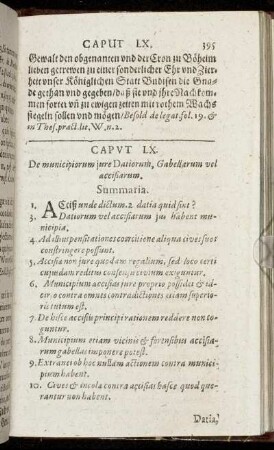 CAPUT LX. 395
Gewalt den obgenanten vnd der Cron zu Böheim
lieben getrewen zu einer sonderlicher Ehr vnd Zier-
heit vnser Königlichen Statt Budisen die Gna-
de gethan vnd gegeben/ daß sie vnd ihre Nachkom-
men forter vñ zu ewigen zeiten mit rothem Wachs
siegeln sollen vnd mögen/ Besold. de legat. fol. 19. &
in Thes. pract. lit. W, n. 2.
CAPVT LX.
De municipiorum jure Datiorum, Gabellarum vel
accisiarum.
Summaria.
1. ACciß unde dictum. 2 datia quid sint?
3. Datiorum vel accisiarum jus habent mu-
nicipia,
4. Ad ejus pensitationes coercitione aliqua cives suos
constringere possunt.
5. Accisia non jure quodam regalium, sed loco certi
cujusdam redituu consensu civium exiguntur.
6. Municipium accisiam jure proprio possidet & id-
eo contra omnes contradictiones etiam superio-
ris tutum est.
7. De hisce accisiis principi rationem reddere non co-
guntur.
8. Municipiuni etiam vicinis & forensibus accisia-
rum gabellas imponere potest.
9. Extranei ob hoc nullam actionem contra munici-
pium habent.
10. Cives & incola contra accisias hasce quod que-
rantur non habent.
Datia,